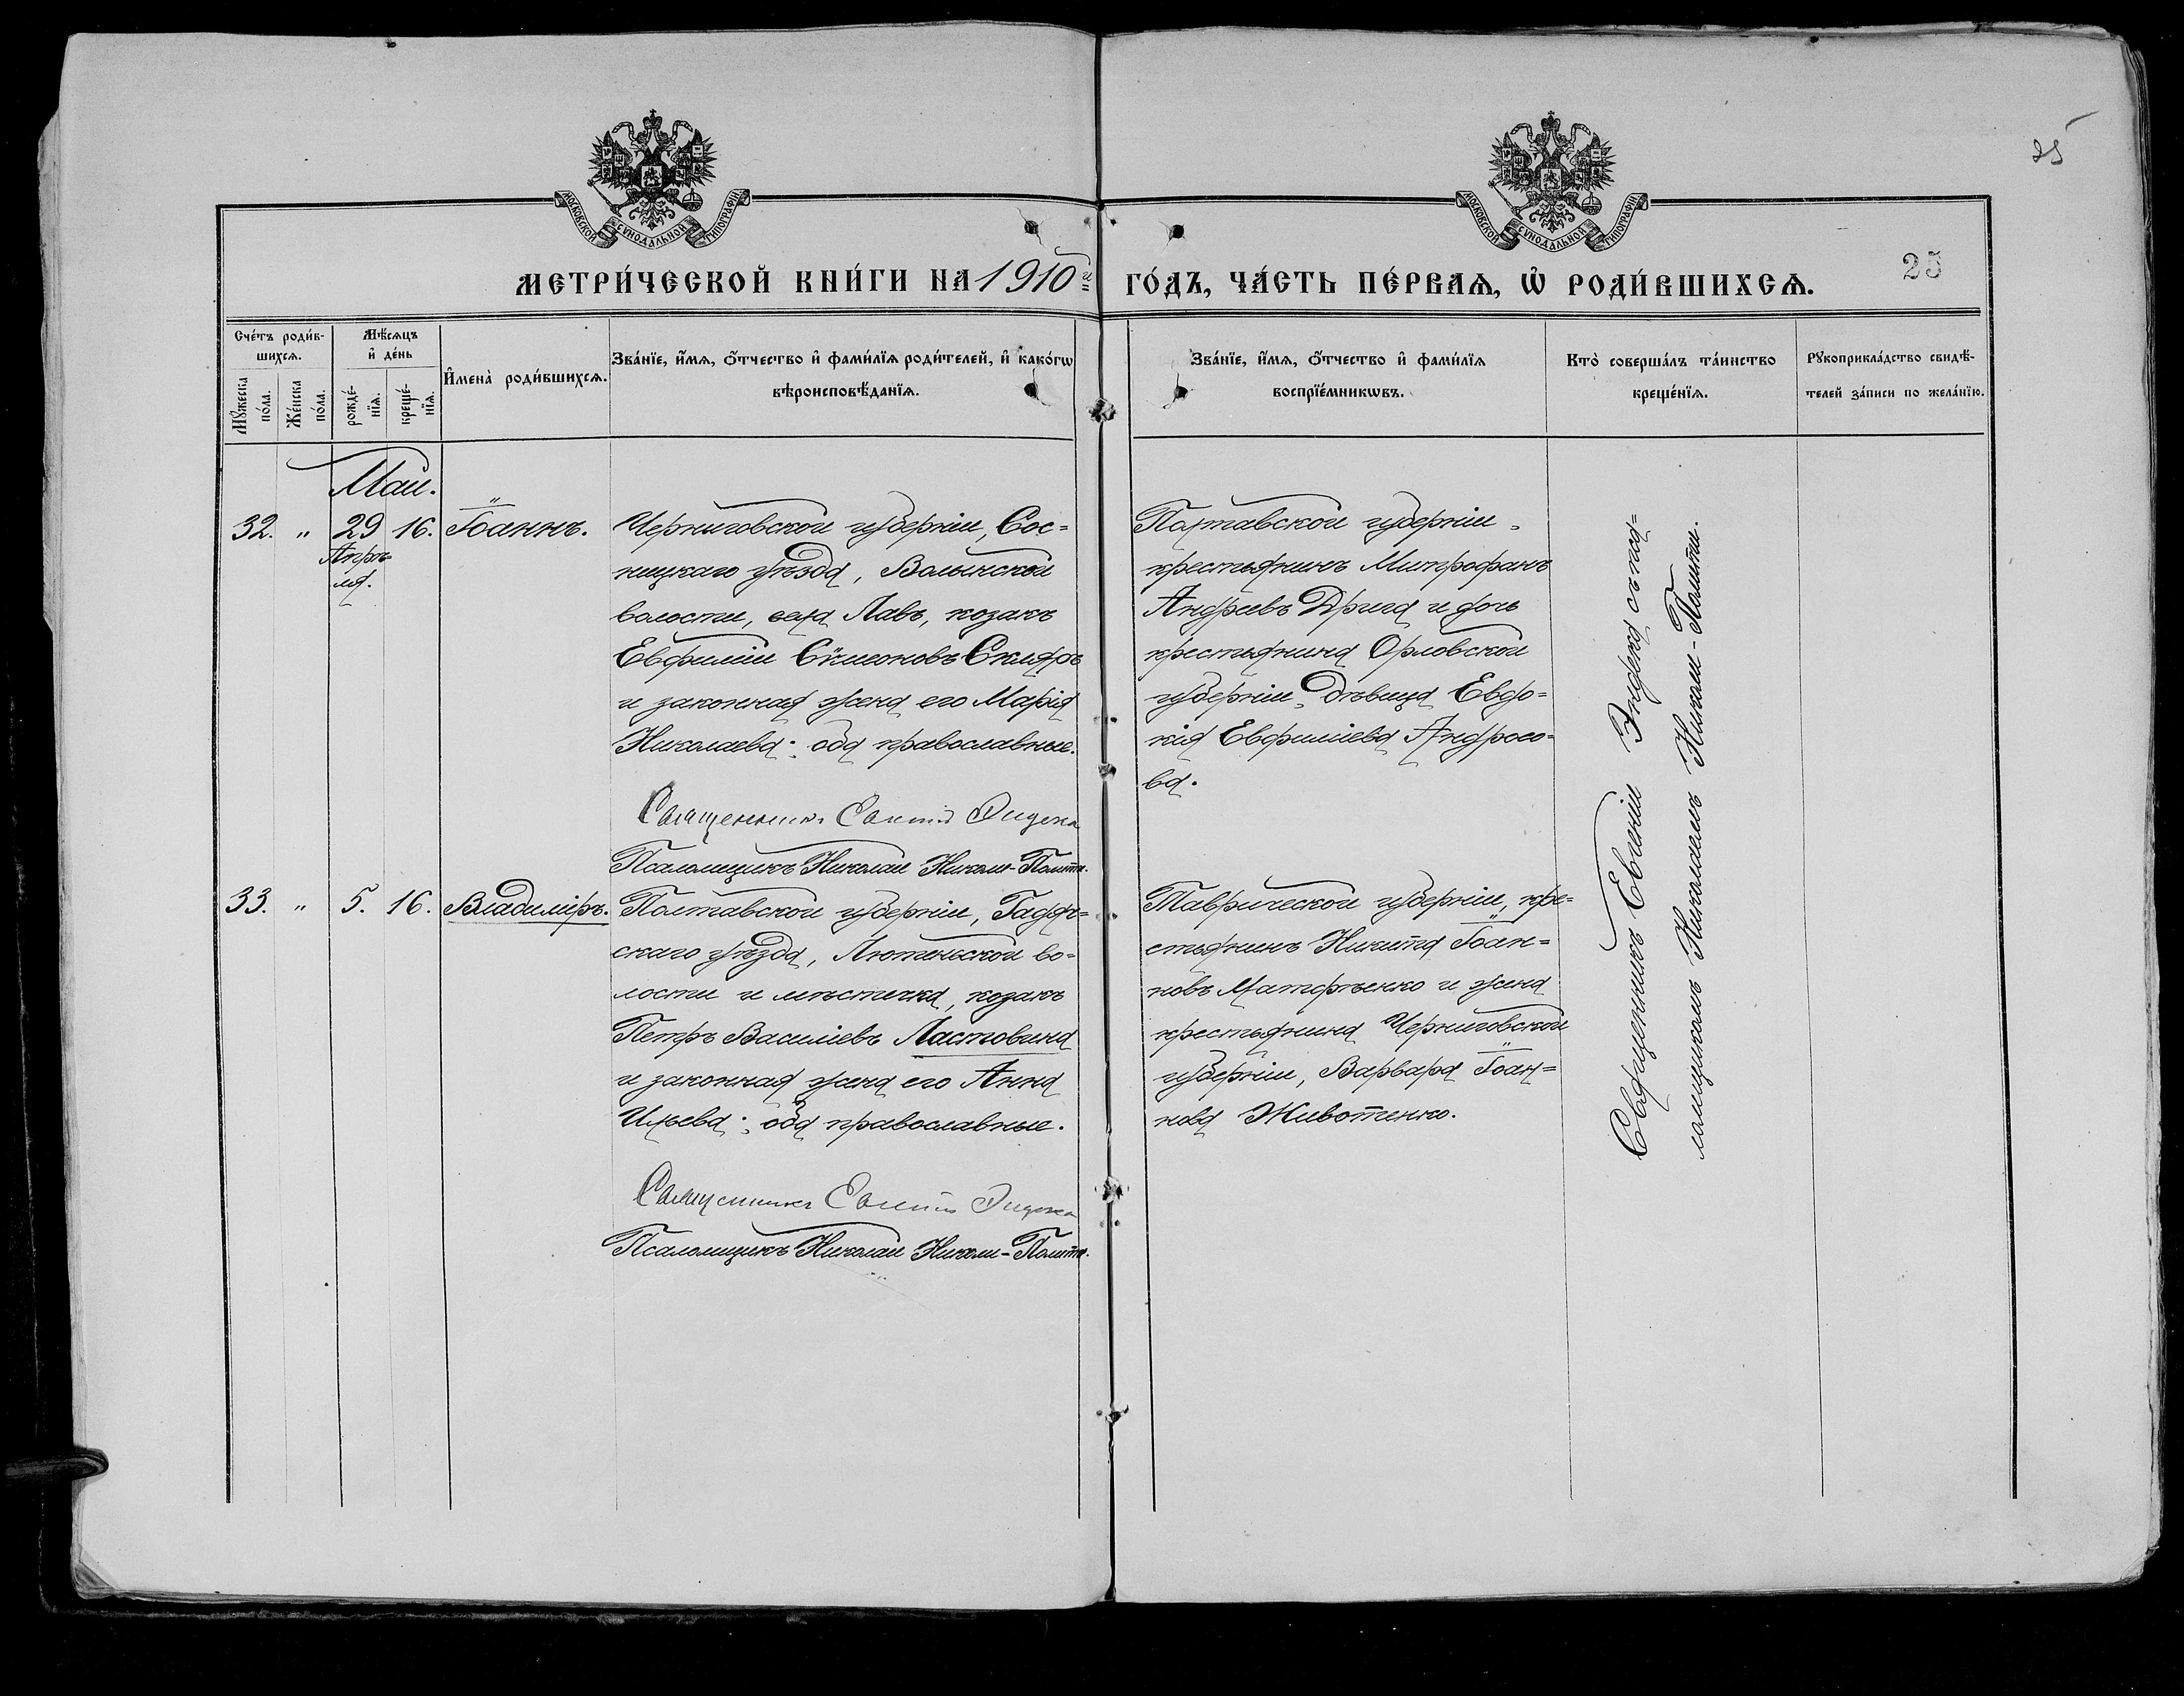 25
МОСКОВСКОЙ СѴНОДАЛЬНОЙ ТИПОГРАФІИ
МОСКОВСКОЙ СѴНОДАЛЬНОЙ ТИПОГРАФІИ
МЕТРИ́ЧЕСКОЙ КНИ́ГИ НА 1910й ГО́ДЪ, ЧА́СТЬ ПЕ́РВАѦ, Ѡ҆ РОДИ́ВШИХСѦ. 25
Сче́тъ роди́в-
шихсѧ.
Мѣ́сѧцъ
и҆ де́нь
Мꙋ́жеска
по́ла.
Же́нска
по́ла.
рожде́-
нїѧ.
креще́-
нїѧ.
И҆мена̀ роди́вшихсѧ.
Зва́нїе, и҆́мѧ, ѻ҆́тчество и҆ фами́лїѧ роди́телей, и҆ како́гѡ
вѣроисповѣ́данїѧ.
Зва́нїе, и҆́мѧ, ѻ҆́тчество и҆ фами́лїѧ
воспрїе́мникѡвъ.
Кто̀ соверша́лъ та́инство
креще́нїѧ.
Рꙋкоприкла́дство свидѣ́-
телей за́писи по жела́нїю.
Май.
32. " 29 16. Іоаннъ.
Апрѣ-
ля.
Черниговской губерніи, Сос=
ницкаго уѣзда, Волынской
волости, села Лавъ, козакъ
Евфимій Сѷмеоновъ Скляръ
и законная жена его Марія
Николаева; оба православные.
Священникъ Евгеній Эндека
Псаломщикъ Николай Николи-Политти.
Полтавской губерніи,
крестьянинъ Митрофанъ
Андреевъ Дрига и дочь
крестьянина Орловской
губерніи, дѣвица Евдо=
кія Евфиміева Андросо=
ва.
33. " 5. 16. Владиміръ.
Полтавской губерніи, Гадяч=
скаго уѣзда, Лютеньской во=
лости и мѣстечка, козакъ
Петръ Василіевъ Ластовина
и законная жена его Анна
Ильева; оба православные.
Священникъ Евгеній Эндека
Псаломщикъ Николай Николи-Политти.
Таврической губерніи, кре=
стьянинъ Никита Іоан=
новъ Матфѣенко и жена
крестьянина Черниговской
губерніи, Варвара Іоан=
нова Животенко.
Священникъ Евгеній Эндека съ пса=
ломщикомъ Николаемъ Николи-Политти.